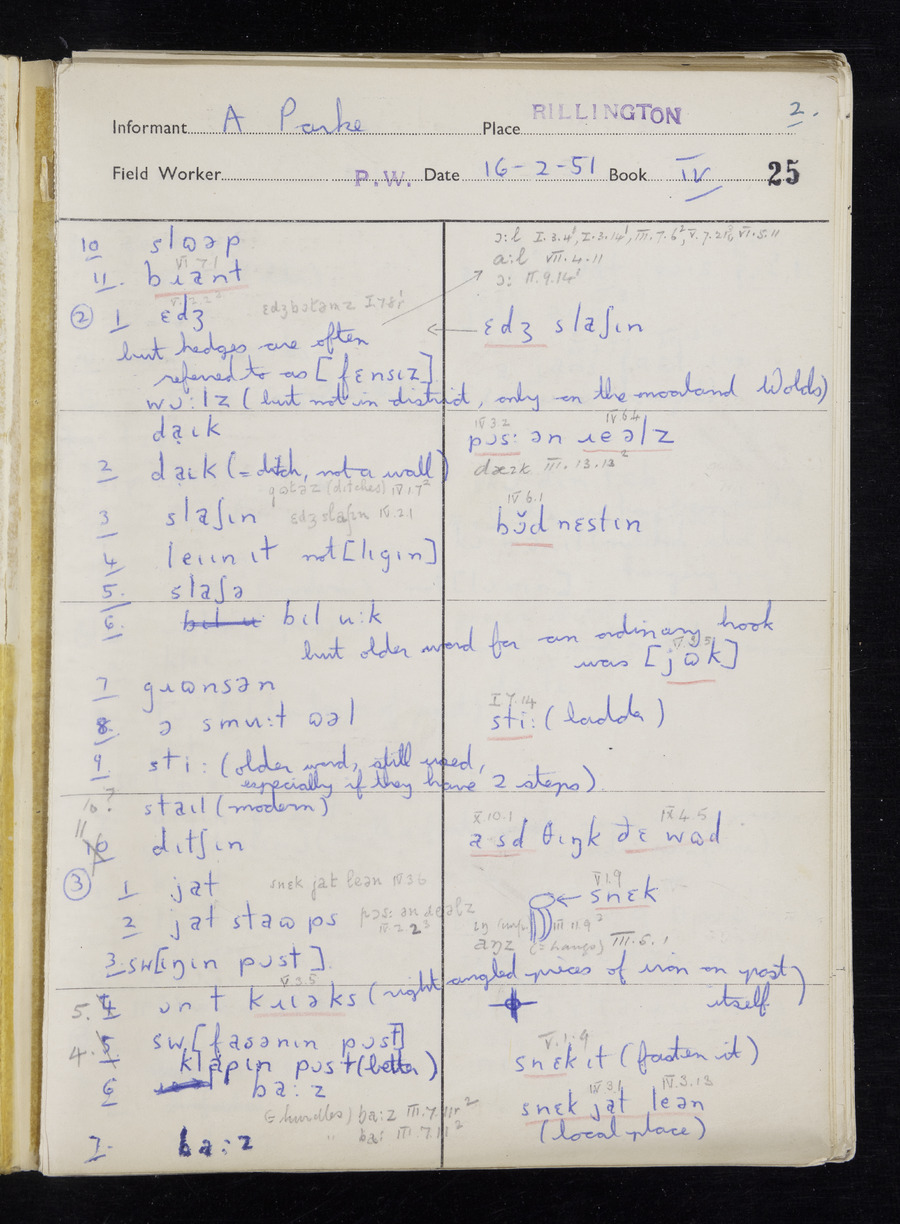 Informant A Parke Place RILLINGTON 2.
Field Worker P.W. Date 16-2-51 Book IV 25
10 slɷəp
11. bɪant
VI 7 1
② 1 ɛdʒ
ɛdʒbɔtəmz
but hedges are often
referred to as [fɛnsɪz]
wɔ:lz (but not in district, only on the moorland Wolds)
daɪk
2 daɪk (= ditch, not a wall)
gɷtəz (ditches) IV.1.7²
3 slaʃɪn ɛdʒ slaʃɪn IV.2.1
4 leɪɪn ɪt not [lɪgɪn]
5. slaʃə
6. bɪl u:k
but older word for an ordinary hook
was [jɷk]
7 gɹɷnsən
8. ə smu:t ɷəl
9. sti: (older word, still used,
especially if they have 2 steps)
10? staɪl (modern)
11 dɪtʃɪn
③ 1 jat snɛk jat leən IV 3 6
2 jat staɷps
3. sw[ɪŋɪn pɔst]
V.3.5
5. ɔn t kɹɪəks (right angled pieces of iron on post itself)
4. sw [fasənɪn pɔst]
klapɪn pɔst (better)
6 ba:z
(= hurdles) ba:z III.7.11²
ba: III.7.11²
7. ba:z
ɔ:l I.3.4', I.3.14', III.7.6², V.7.21, VI.5.11
a:l VII.4.11
ɔ: II.9.14'
ɛdʒ slaʃɪn
IV 3.2 IV 6.4
pɔs: ən ɹeəlz
III.13.13²
IV 6.1
bɔ̆d nɛstɪn
I 7.14
sti: (ladder)
X 10.1 IX 4.5
a sd θɪŋk ðɛ wɷd
VI.9
← snɛk
III 11.9²
aŋz (= hangs) III.5.1
V.1.9
snɛk ɪt (fasten it)
IV 3 1 IV.3.13
snɛk jat leən
(local place)